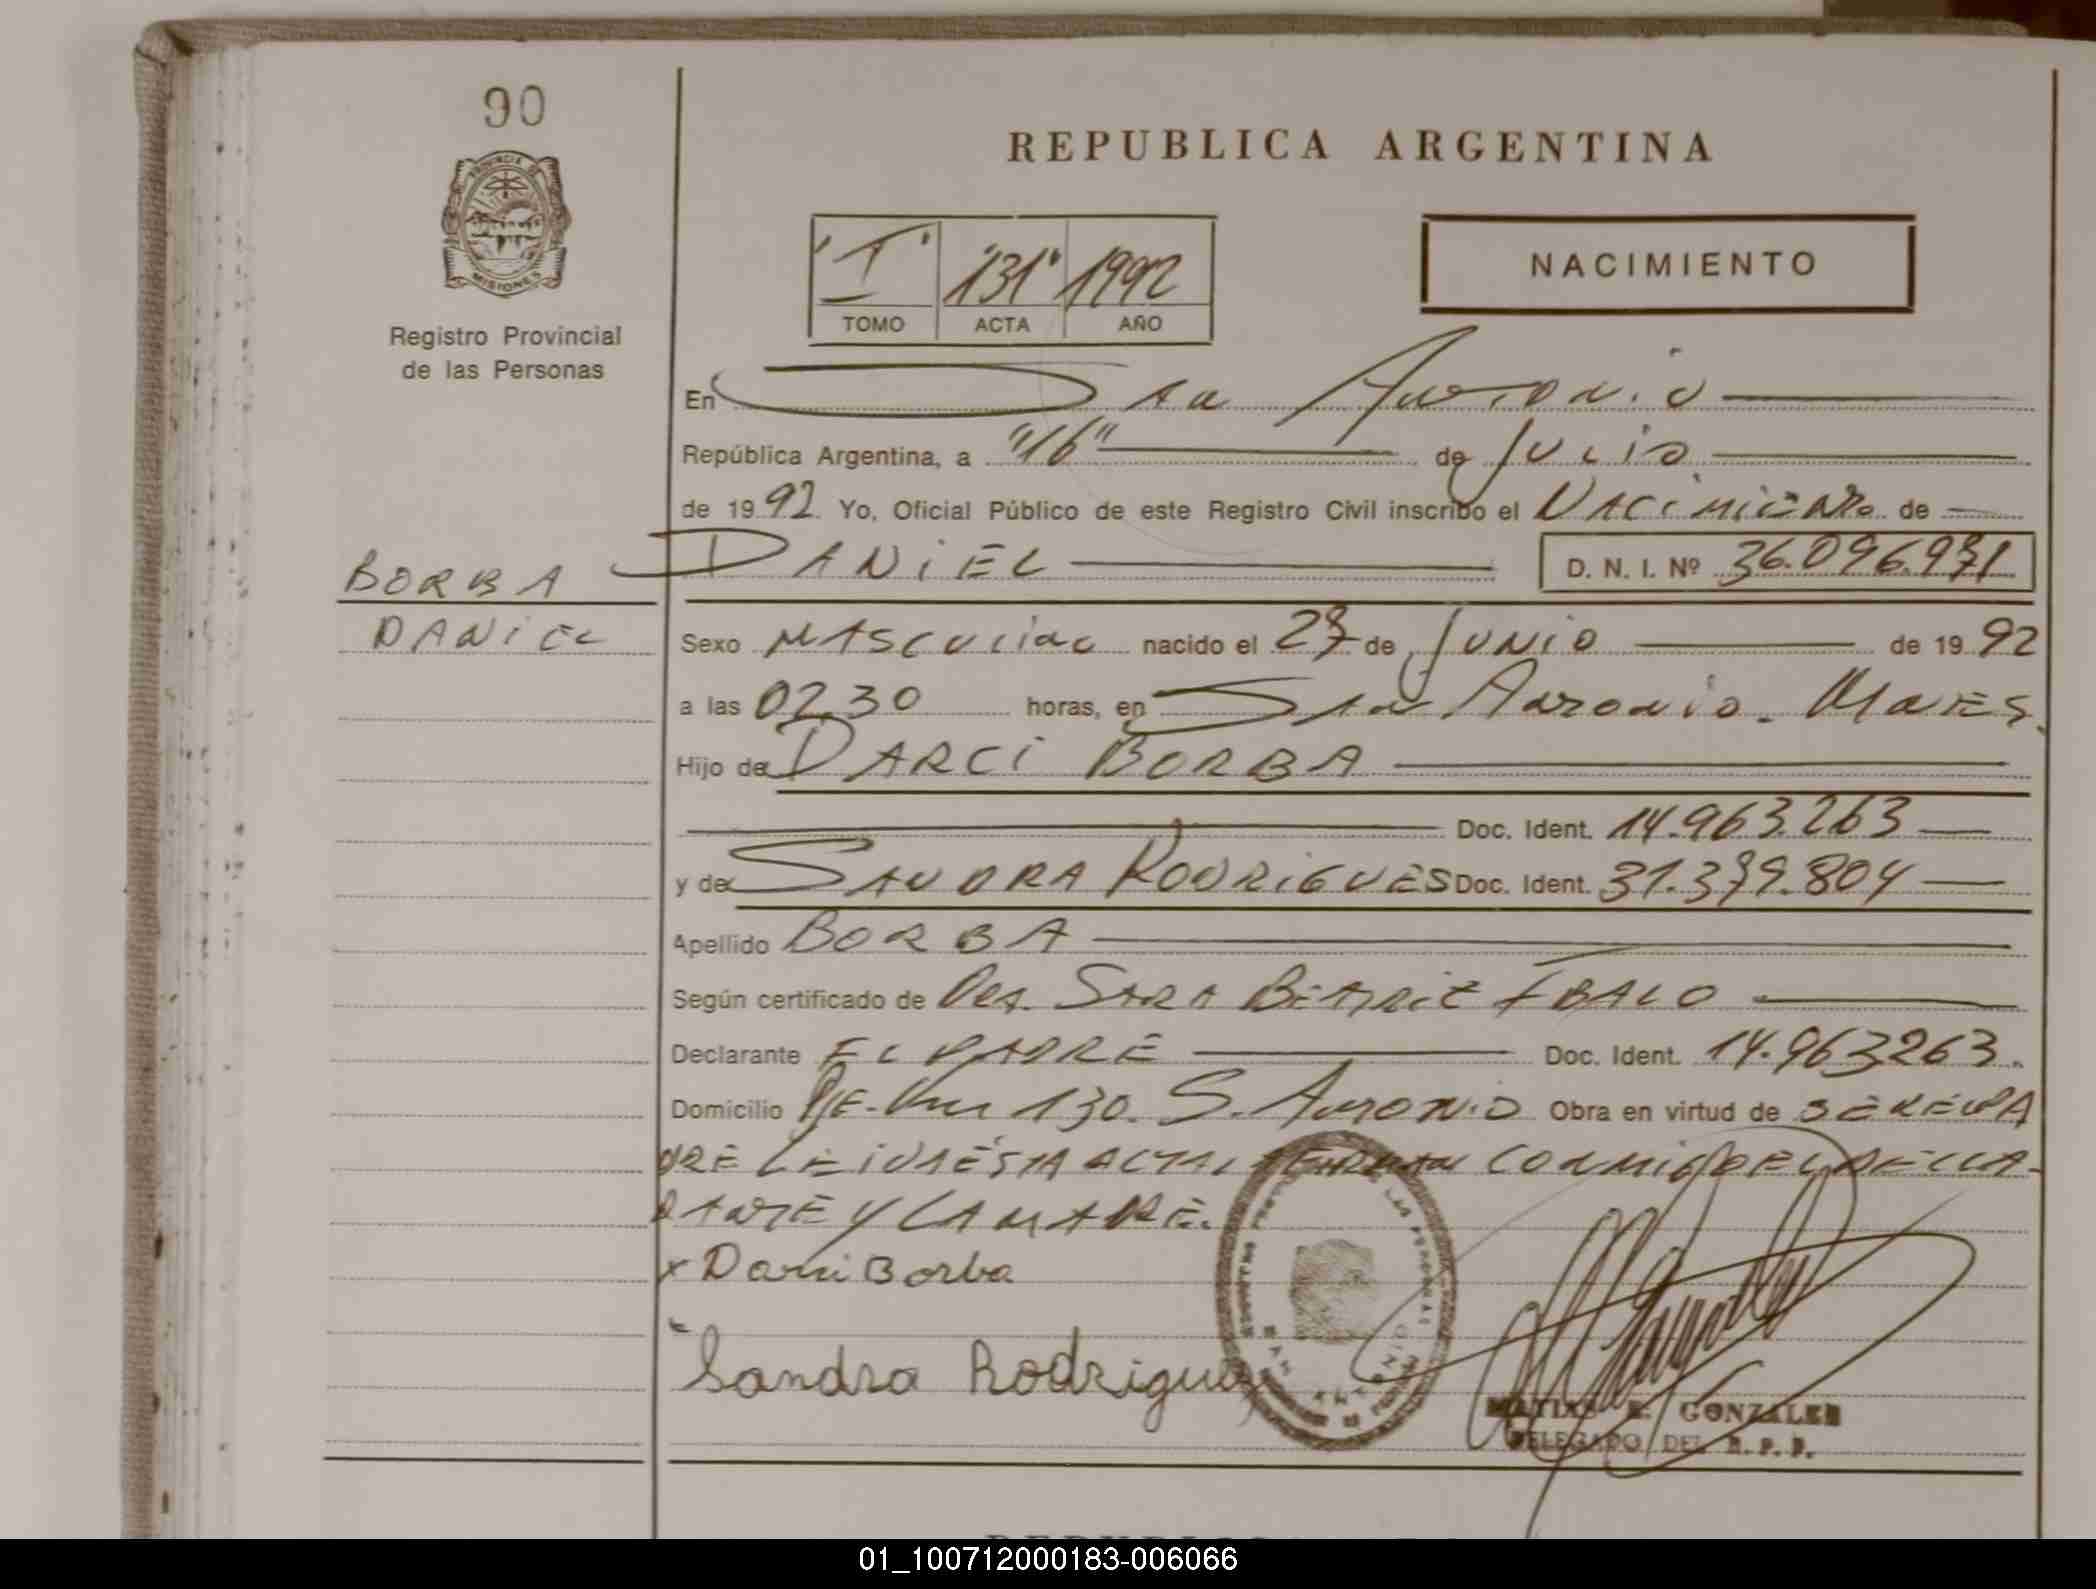 90
PROVINCIA DE
MISIONES
Registro Provincial
de las Personas
REPUBLICA ARGENTINA
"I" "131" 1992
TOMO ACTA AÑO
NACIMIENTO
En San Antonio
República Argentina, a "16" de Julio
de 1992 Yo, Oficial Público de este Registro Civil inscribo el Nacimiento de
DANiEL D. N. I. Nº 36.096.971
BORBA
DANiEL
Sexo MASCULino nacido el 27 de JUNiO de 1992
a las 02,30 horas, en San Antonio. Mnes.
Hijo de DARCi BORBA
Doc. Ident. 14.963.263
y de SANDRA RODRiGUES Doc. Ident. 31.379.804
Apellido BORBA
Según certificado de Dra. SARA BEATRiz
Declarante EL PADRE Doc. Ident. 14.963263.
Domicilio Pje. Km 130. S. Antonio Obra en virtud de SER EL PA
DRE LEiDA ESTA ACTA LA FIRMAN CONMiGO EL DECLA-
RANTE Y LA MADRE.
x Darci Borba
Sandra Rodrigues
SAN ANTONIO
MATIAS E. GONZALEZ
DELEGADO DEL R. P. P.
01_100712000183-006066